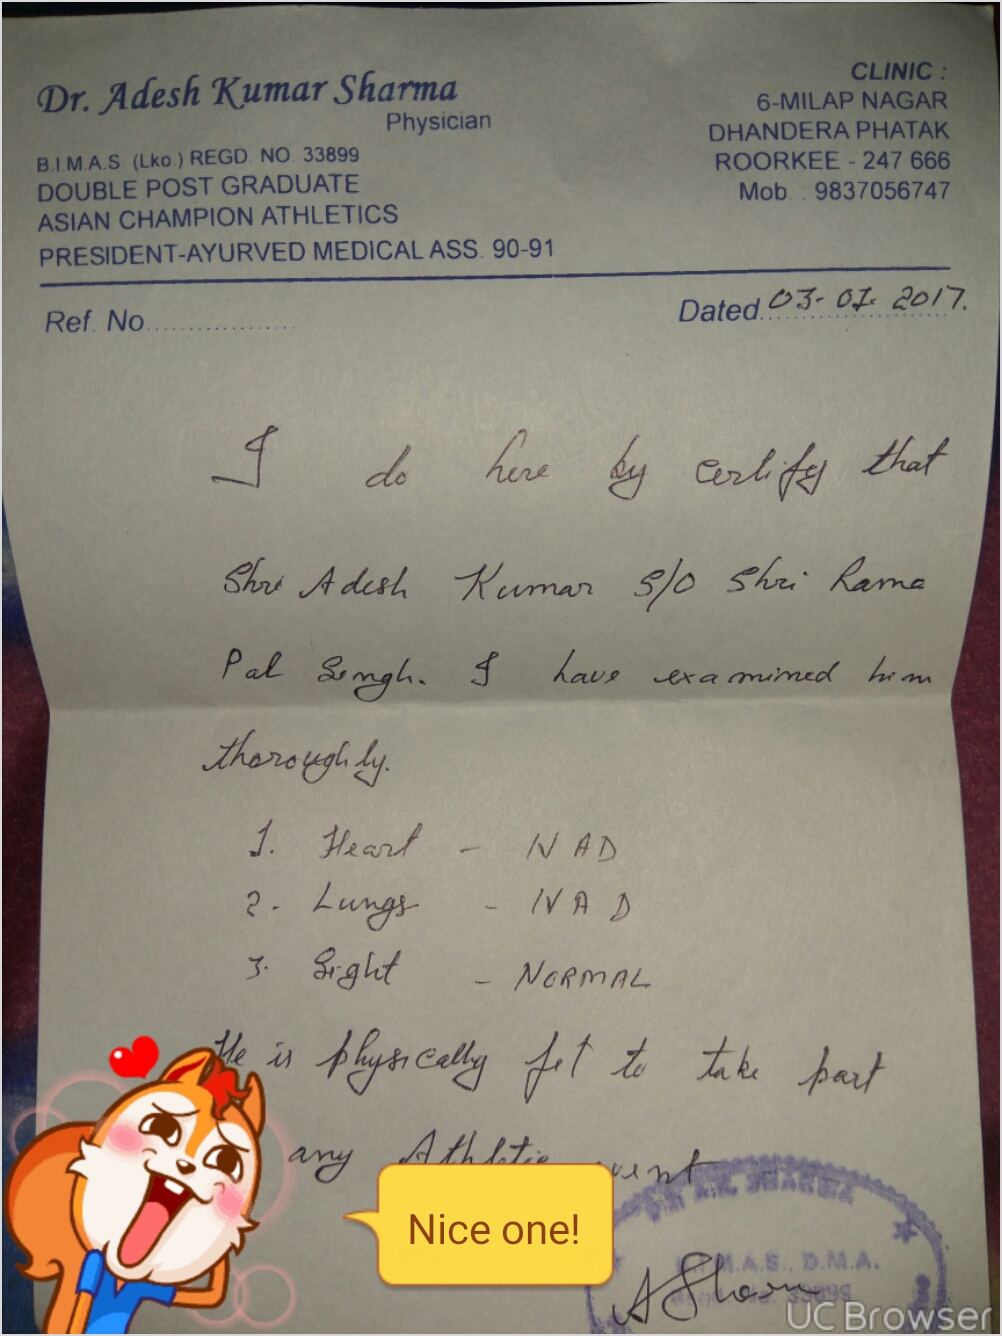 Dr. Adesh Kumar Sharma
Physician
B.I.M.A.S. (Lko.) REGD. NO. 33899
DOUBLE POST GRADUATE
ASIAN CHAMPION ATHLETICS
PRESIDENT-AYURVED MEDICAL ASS. 90-91
CLINIC :
6-MILAP NAGAR
DHANDERA PHATAK
ROORKEE - 247 666
Mob. . 9837056747
Ref. No................
Dated 03-07-2017.
I do here by certify that
Shri Adesh Kumar S/O Shri Rama
Pal Singh. I have examined him
thoroughly.
1. Heart - NAD
2. Lungs - NAD
3. Sight - NORMAL
He is physically fit to take part
any Athletic event
Nice one!
M.A.S., D.M.A.
A Sharma
UC Browser